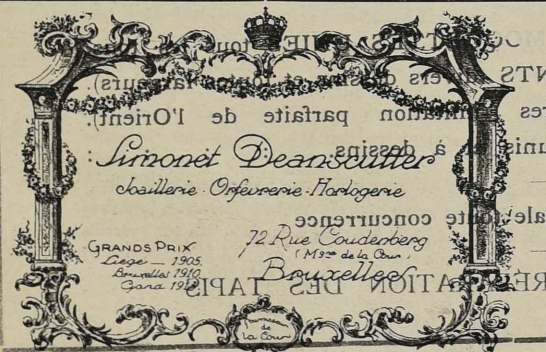 Simonet Deanscutter
Joaillerie - Orfevrerie - Horlogerie
GRANDS PRIX
Liège — 1905
Bruxelles 1910
Gand 1913
72 Rue Coudenberg
(Mson de la Cour)
Bruxelles
Fournisseur
de
la Cour